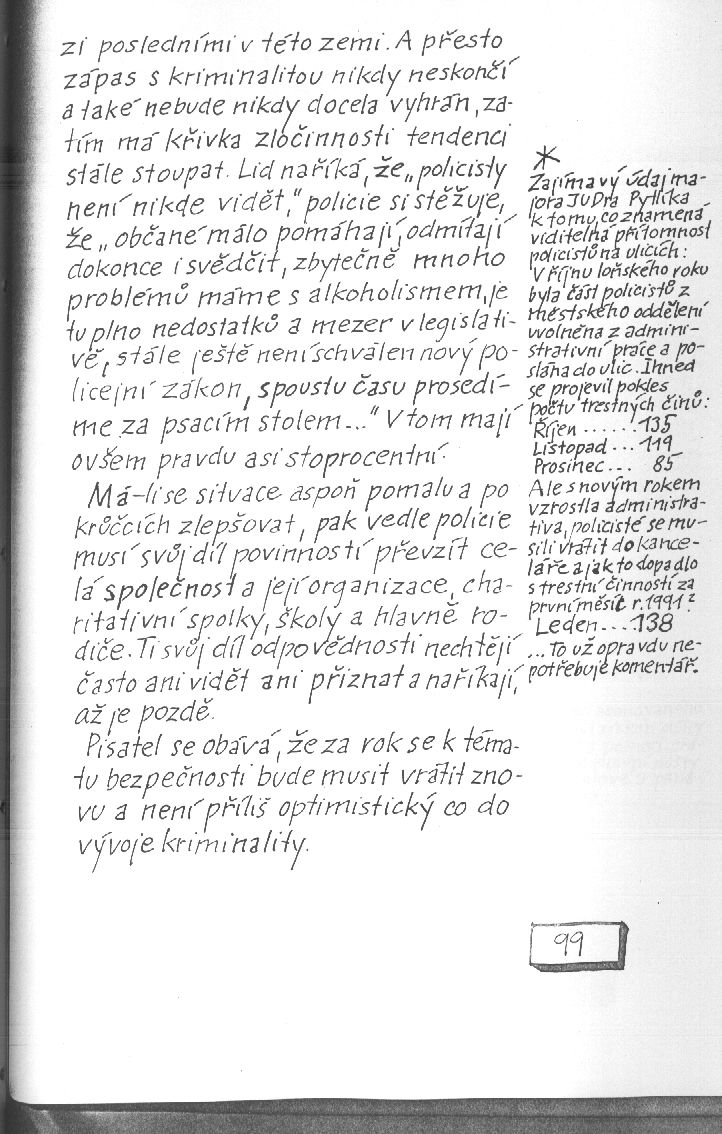 zi posledními v této zemi. A přesto
zápas s kriminalitou nikdy neskončí
a také nebude nikdy docela vyhrán, za-
tím má křivka zločinnosti tendenci
stále stoupat. Lid naříká, že „policisty
není nikde vidět,“ policie si stěžuje,
že „občané málo pomáhají, odmítají
dokonce i svědčit, zbytečně mnoho
problémů máme s alkoholismem, je
tu plno nedostatků a mezer v legislati-
vě, stále ještě není schválen nový po-
licejní zákon, spoustu času prosedí-
me za psacím stolem...“ V tom mají
ovšem pravdu asi stoprocentní.
Má-li se situace aspoň pomalu a po
krůčcích zlepšovat, pak vedle policie
musí svůj díl povinností převzít ce-
lá společnost a její organizace, cha-
ritativní spolky, školy a hlavně ro-
diče. Ti svůj díl odpovědnosti nechtějí
často ani vidět ani přiznat a naříkají,
až je pozdě.
Pisatel se obává, že za rok se k téma-
tu bezpečnosti bude musit vrátit zno-
vu a není příliš optimistický co do
vývoje kriminality.
*
Zajímavý údaj ma-
jora JUDra Pytlíka
k tomu, co znamená
viditelná přítomnost
policistů na ulicích:
V říjnu loňského roku
byla část policistů z
městského oddělení
uvolněna z admini-
strativní práce a po-
slána do ulic. Ihned
se projevil pokles
počtu trestných činů:
Říjen ..... 135
Listopad ... 119
Prosinec ... 85
Ale s novým rokem
vzrostla administra-
tiva, policisté se mu-
sili vrátit do kance-
láře a jak to dopadlo
s trestní činností za
první měsíc r. 1991?
Leden ... 138
... To už opravdu ne-
potřebuje komentář.
99